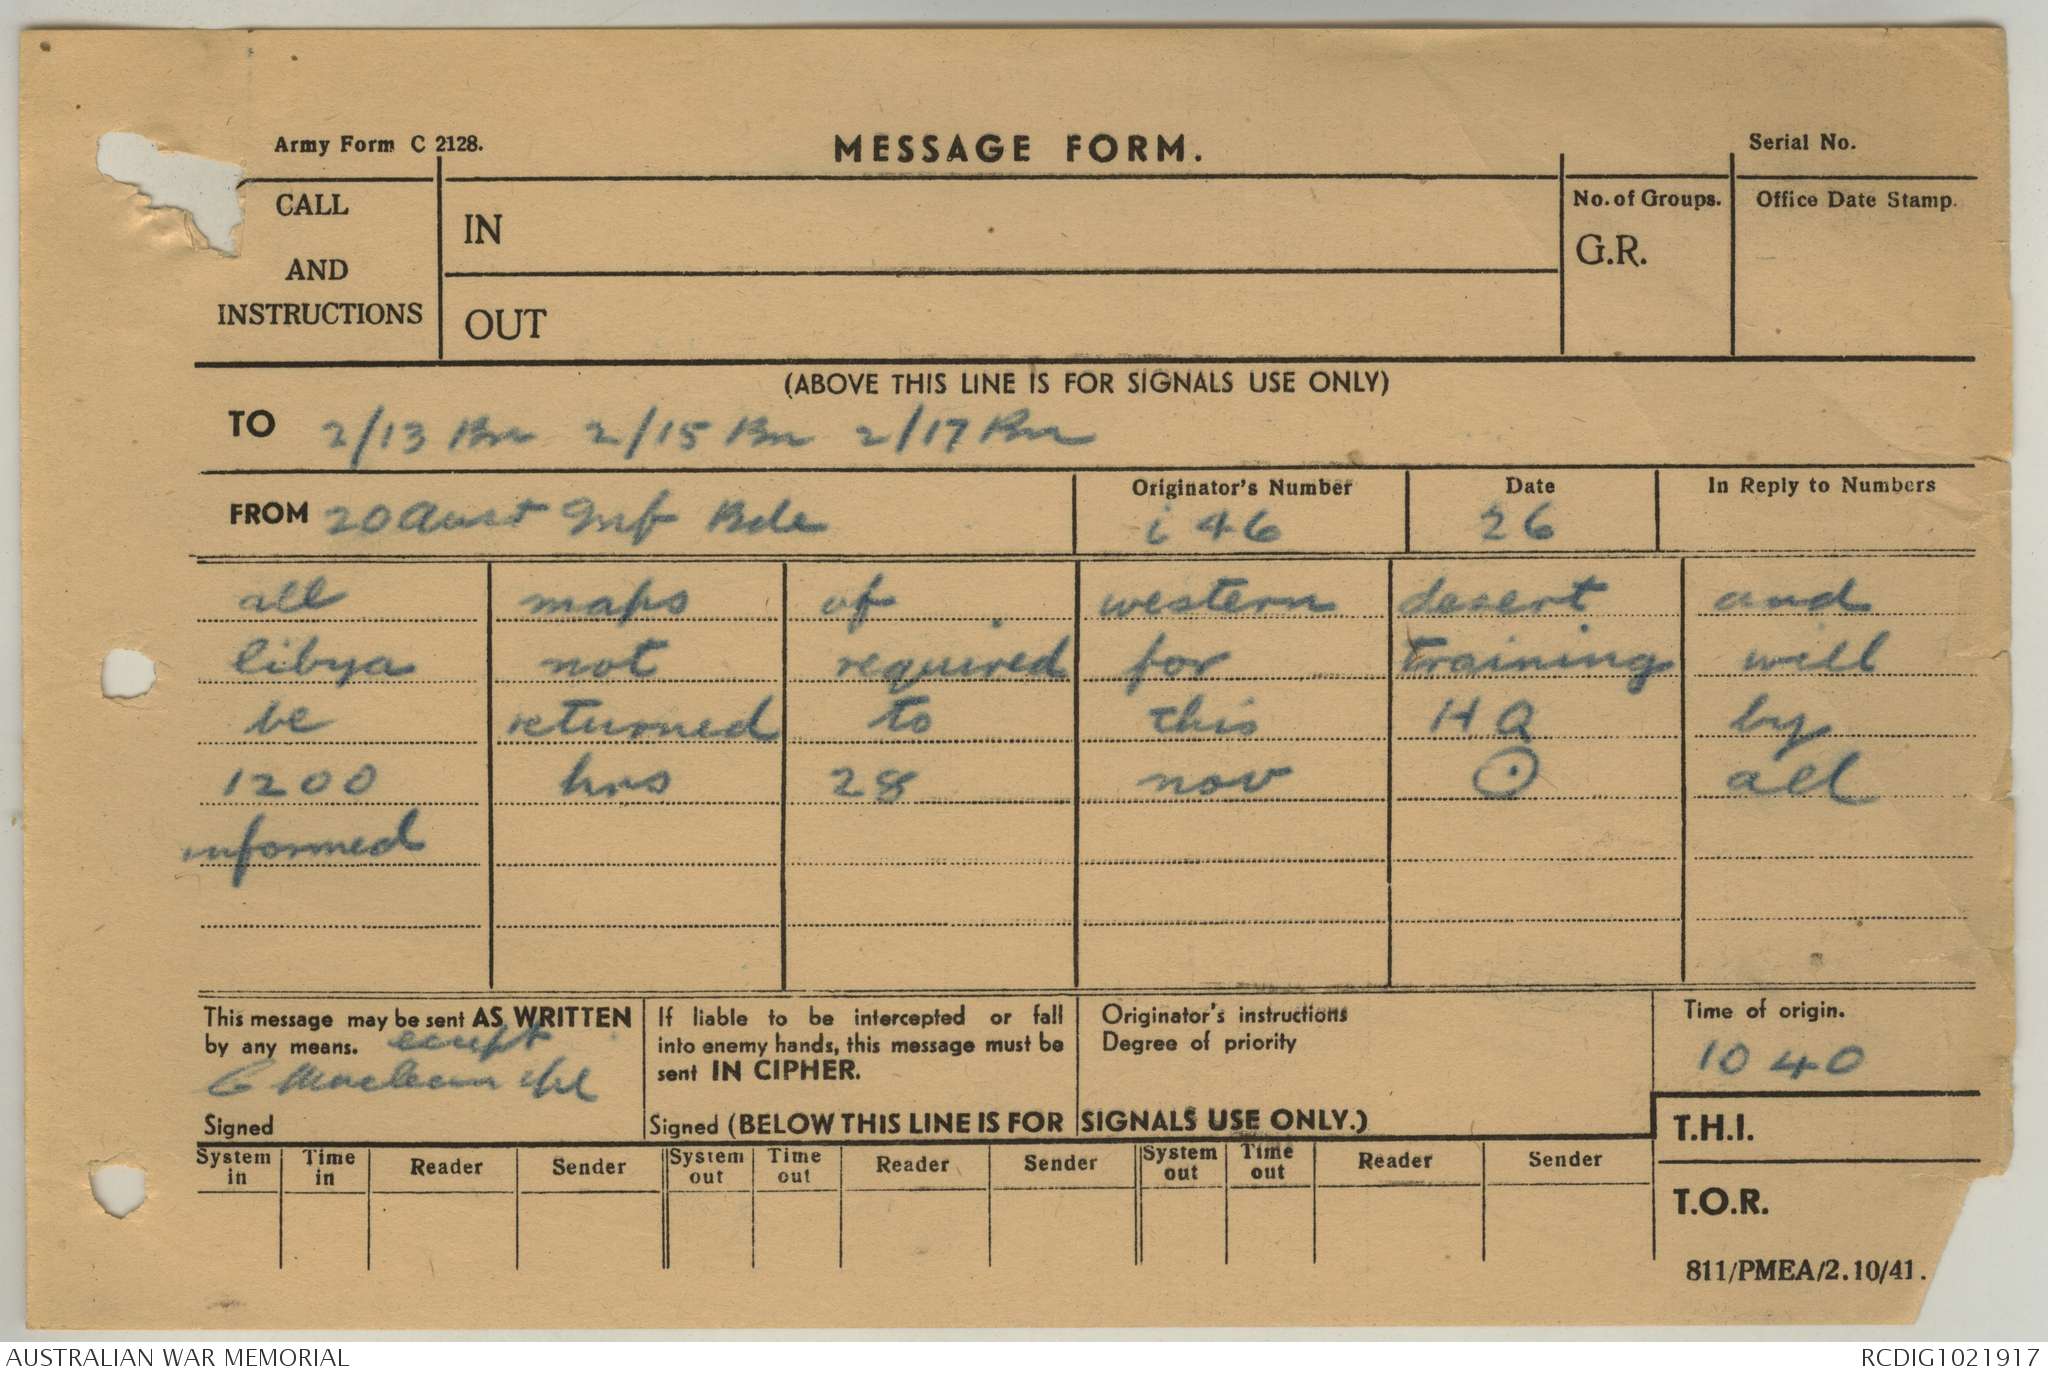 Army Form C 2128. MESSAGE FORM. Serial No.
CALL
AND
INSTRUCTIONS
IN
OUT
No. of Groups.
G.R.
Office Date Stamp.
(ABOVE THIS LINE IS FOR SIGNALS USE ONLY)
TO 2/13 Bn 2/15 Bn 2/17 Bn
FROM 20 Aust Inf Bde
Originator's Number
i 46
Date
26
In Reply to Numbers
all maps of western desert and
libya not required for training will
be returned to this HQ by
1200 hrs 28 nov ⊙ all
informed
This message may be sent AS WRITTEN
by any means. except
Signed
If liable to be intercepted or fall
into enemy hands, this message must be
sent IN CIPHER.
Signed (BELOW THIS LINE IS FOR SIGNALS USE ONLY.)
Originator's instructions
Degree of priority
Time of origin.
1040
T.H.I.
T.O.R.
System in Time in Reader Sender System out Time out Reader Sender System out Time out Reader Sender
811/PMEA/2.10/41.
AUSTRALIAN WAR MEMORIAL RCDIG1021917